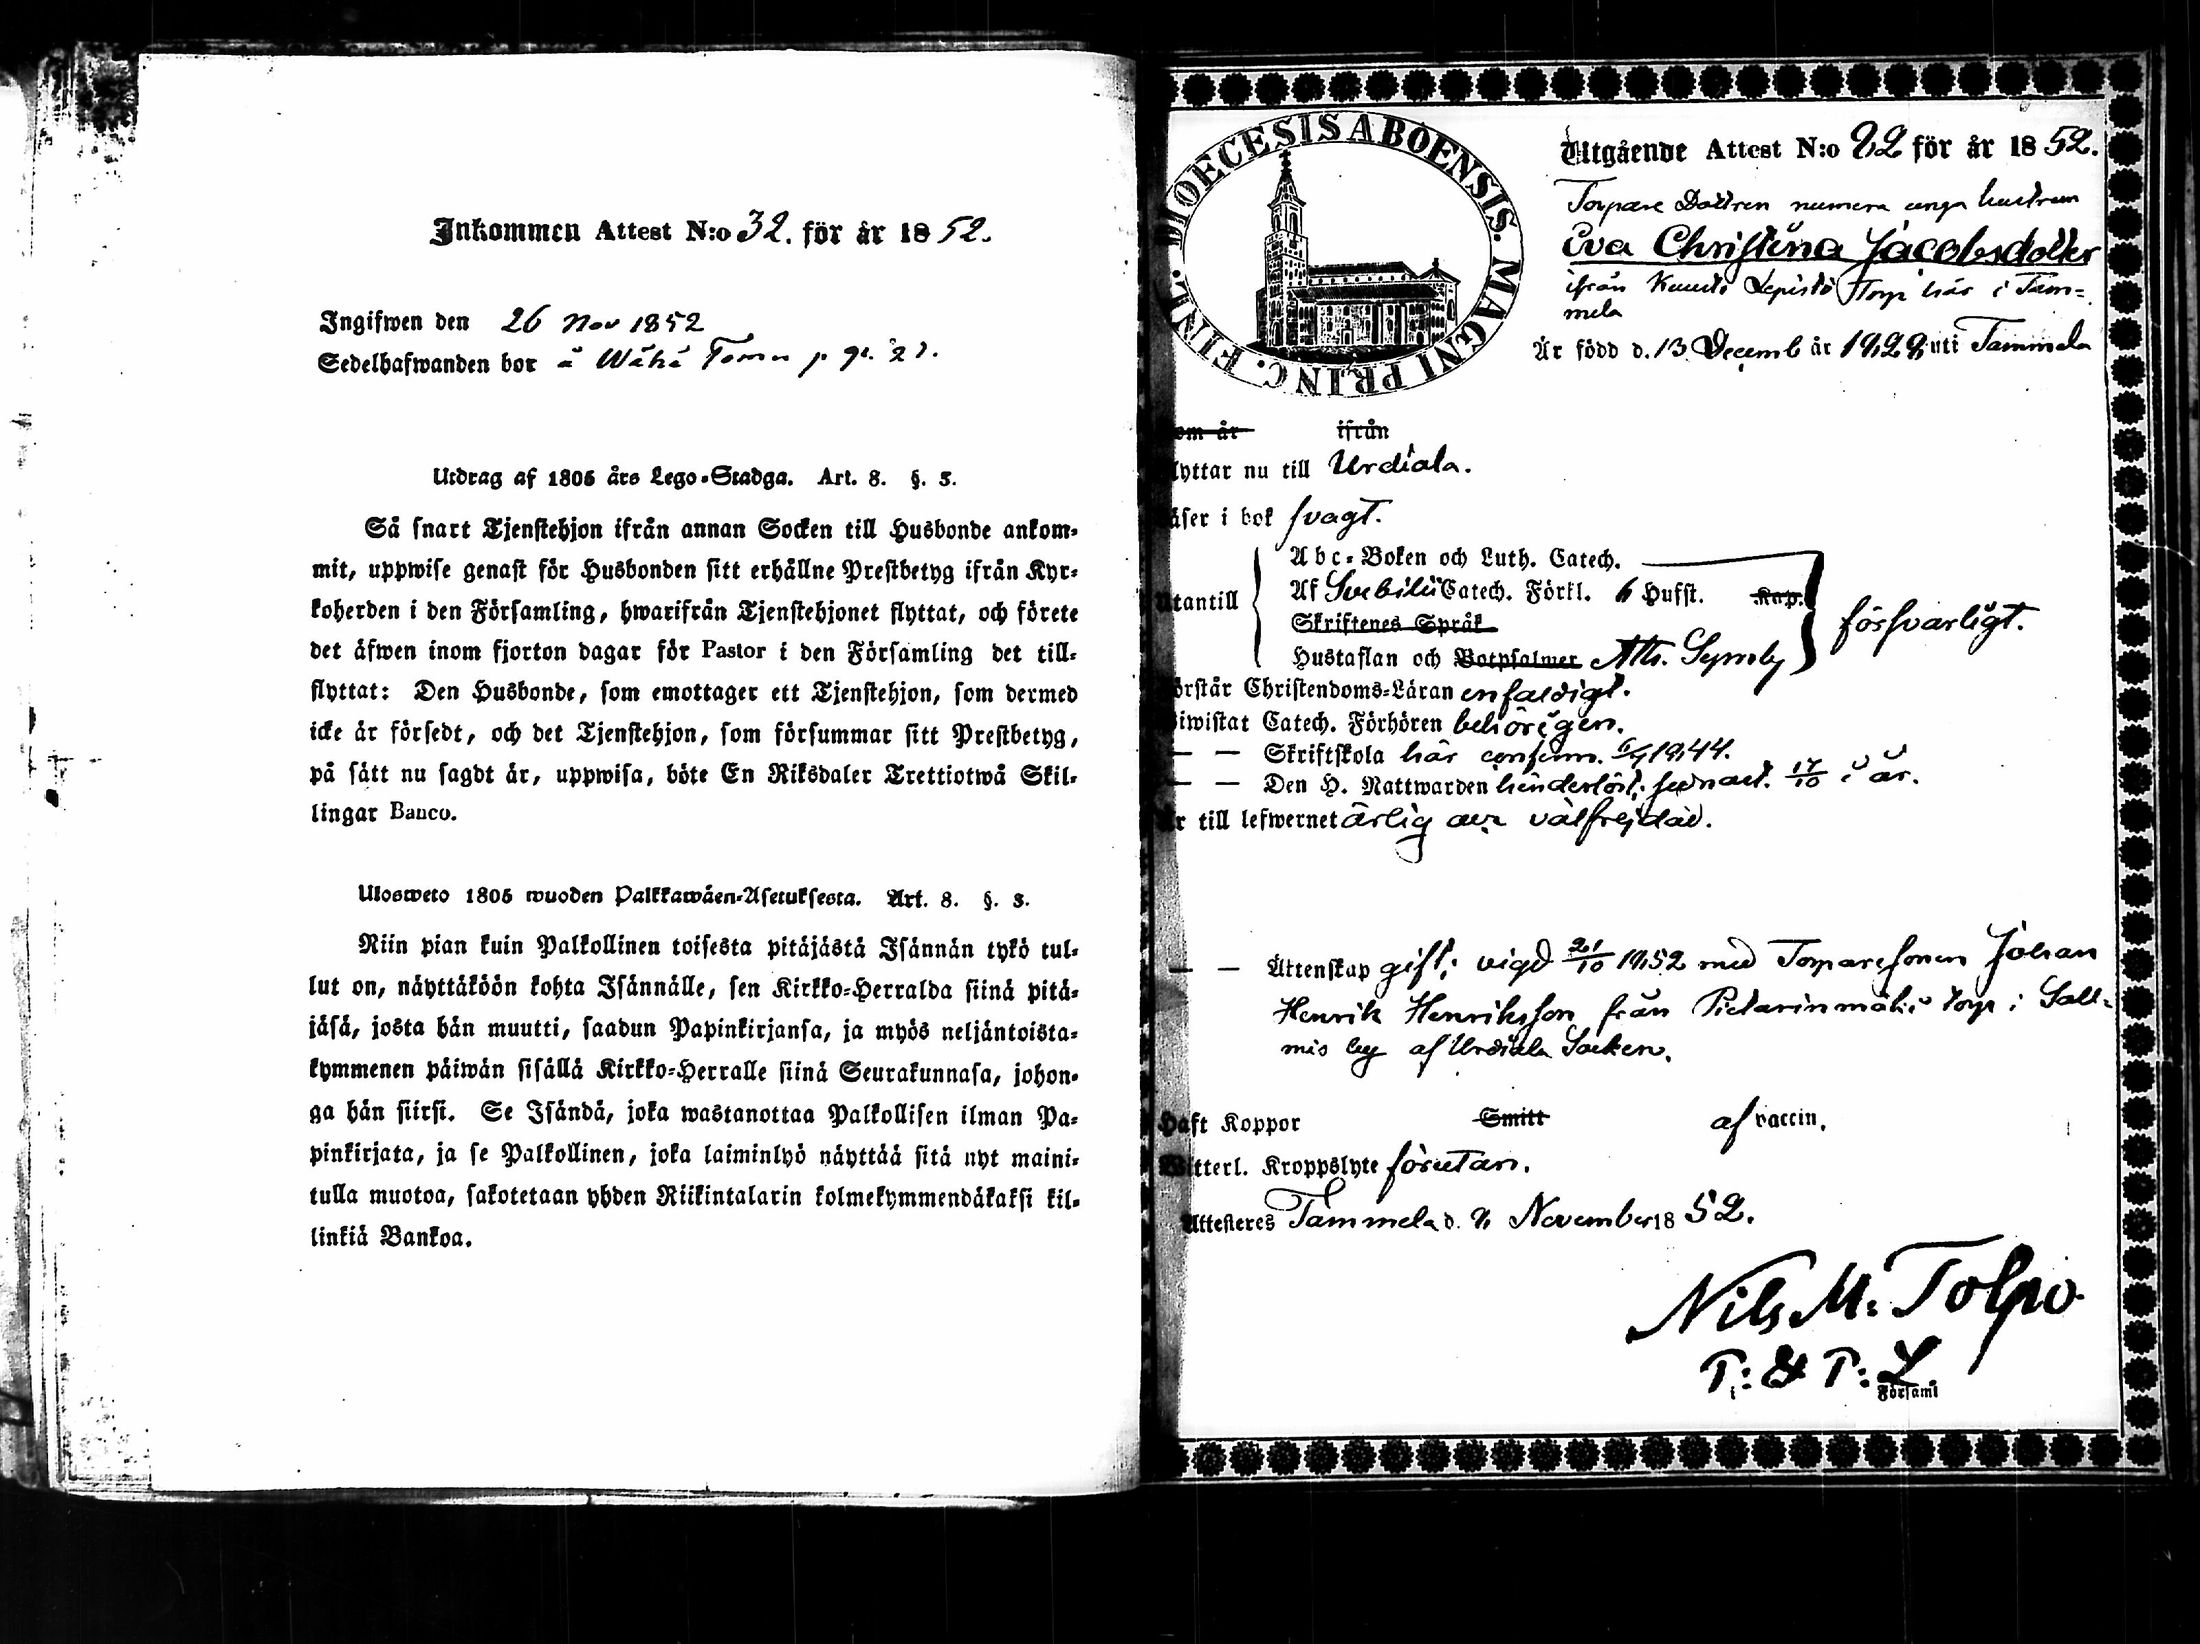 Inkommen Attest N:o 32. för år 1852.
Ingifwen den 26 Nov 1852
Sedelhafwanden bor å Wähä Tomu p
Utdrag af 1805 års Lego-Stadga. Art. 8. §. 3.
Så snart Tjenstehjon ifrån annan Socken till Husbonde ankom-
mit, uppwise genast för Husbonden sitt erhållne Prestbetyg ifrån Kyr-
koherden i den Församling, hwarifrån Tjenstehjonet flyttat, och förete
det äfwen inom fjorton dagar för Pastor i den Församling det till-
flyttat: Den Husbonde, som emottager ett Tjenstehjon, som dermed
icke är försedt, och det Tjenstehjon, som försummar sitt Prestbetyg,
på sätt nu sagdt är, uppwisa, böte En Riksdaler Trettiotwå Skil-
lingar Banco.
Ulosweto 1805 wuoden Palkkawäen-Asetuksesta. Art. 8. §. 3.
Niin pian kuin Palkollinen toisesta pitäjästä Isännän tykö tul-
lut on, näyttäköön kohta Isännälle, sen Kirkko-Herralda siinä pitä-
jäsä, josta hän muutti, saadun Papinkirjansa, ja myös neljäntoista-
kymmenen päiwän sisällä Kirkko-Herralle siinä Seurakunnasa, johon-
ga hän siirsi. Se Isändä, joka wastanottaa Palkollisen ilman Pa-
pinkirjata, ja se Palkollinen, joka laiminlyö näyttää sitä nyt maini-
tulla muotoa, sakotetaan yhden Riikintalarin kolmekymmendäkaksi kil-
linkiä Bankoa.
DIOECESIS ABOENSIS. MAGNI PRINC. FINL.
Utgående Attest N:o 22 för år 1852.
Torpare Dottren numera unga hustrun
Eva Christina Jacobsdotter
ifrån Lepistö Torp här i Tam-
mela
Är född d. 13 Decemb år 1828 uti Tammela
om år ifrån
lyttar nu till Urdiala.
äser i bok svagt.
Abc-Boken och Luth. Catech.
tantill Af Svebilii Catech. Förkl. 6 Hufst. Kap. försvarligt.
Skriftenes Språk
Hustaflan och Botpsalmer Ath. Symb
örstår Christendoms-Läran enfaldigt.
iwistat Catech. Förhören behörigen.
— — Skriftskola här confirm. 1844.
— — Den H. Nattwarden hinderlöst; senast 17/10 i år.
r till lefwernet ärlig och välfrejdad.
— — Ächtenskap gift; vigd 21/10 1852 med Torparesonen Johan
Henrik Henriksson från Pietarinmäki torp i Sall-
mis by af Urdiala Socken.
Haft Koppor Smitt af vaccin.
Witterl. Kroppslyte förutan.
Attesteres Tammela d. 8 November 1852.
Nils M: Tolpo
P: & P: L.
i Församl